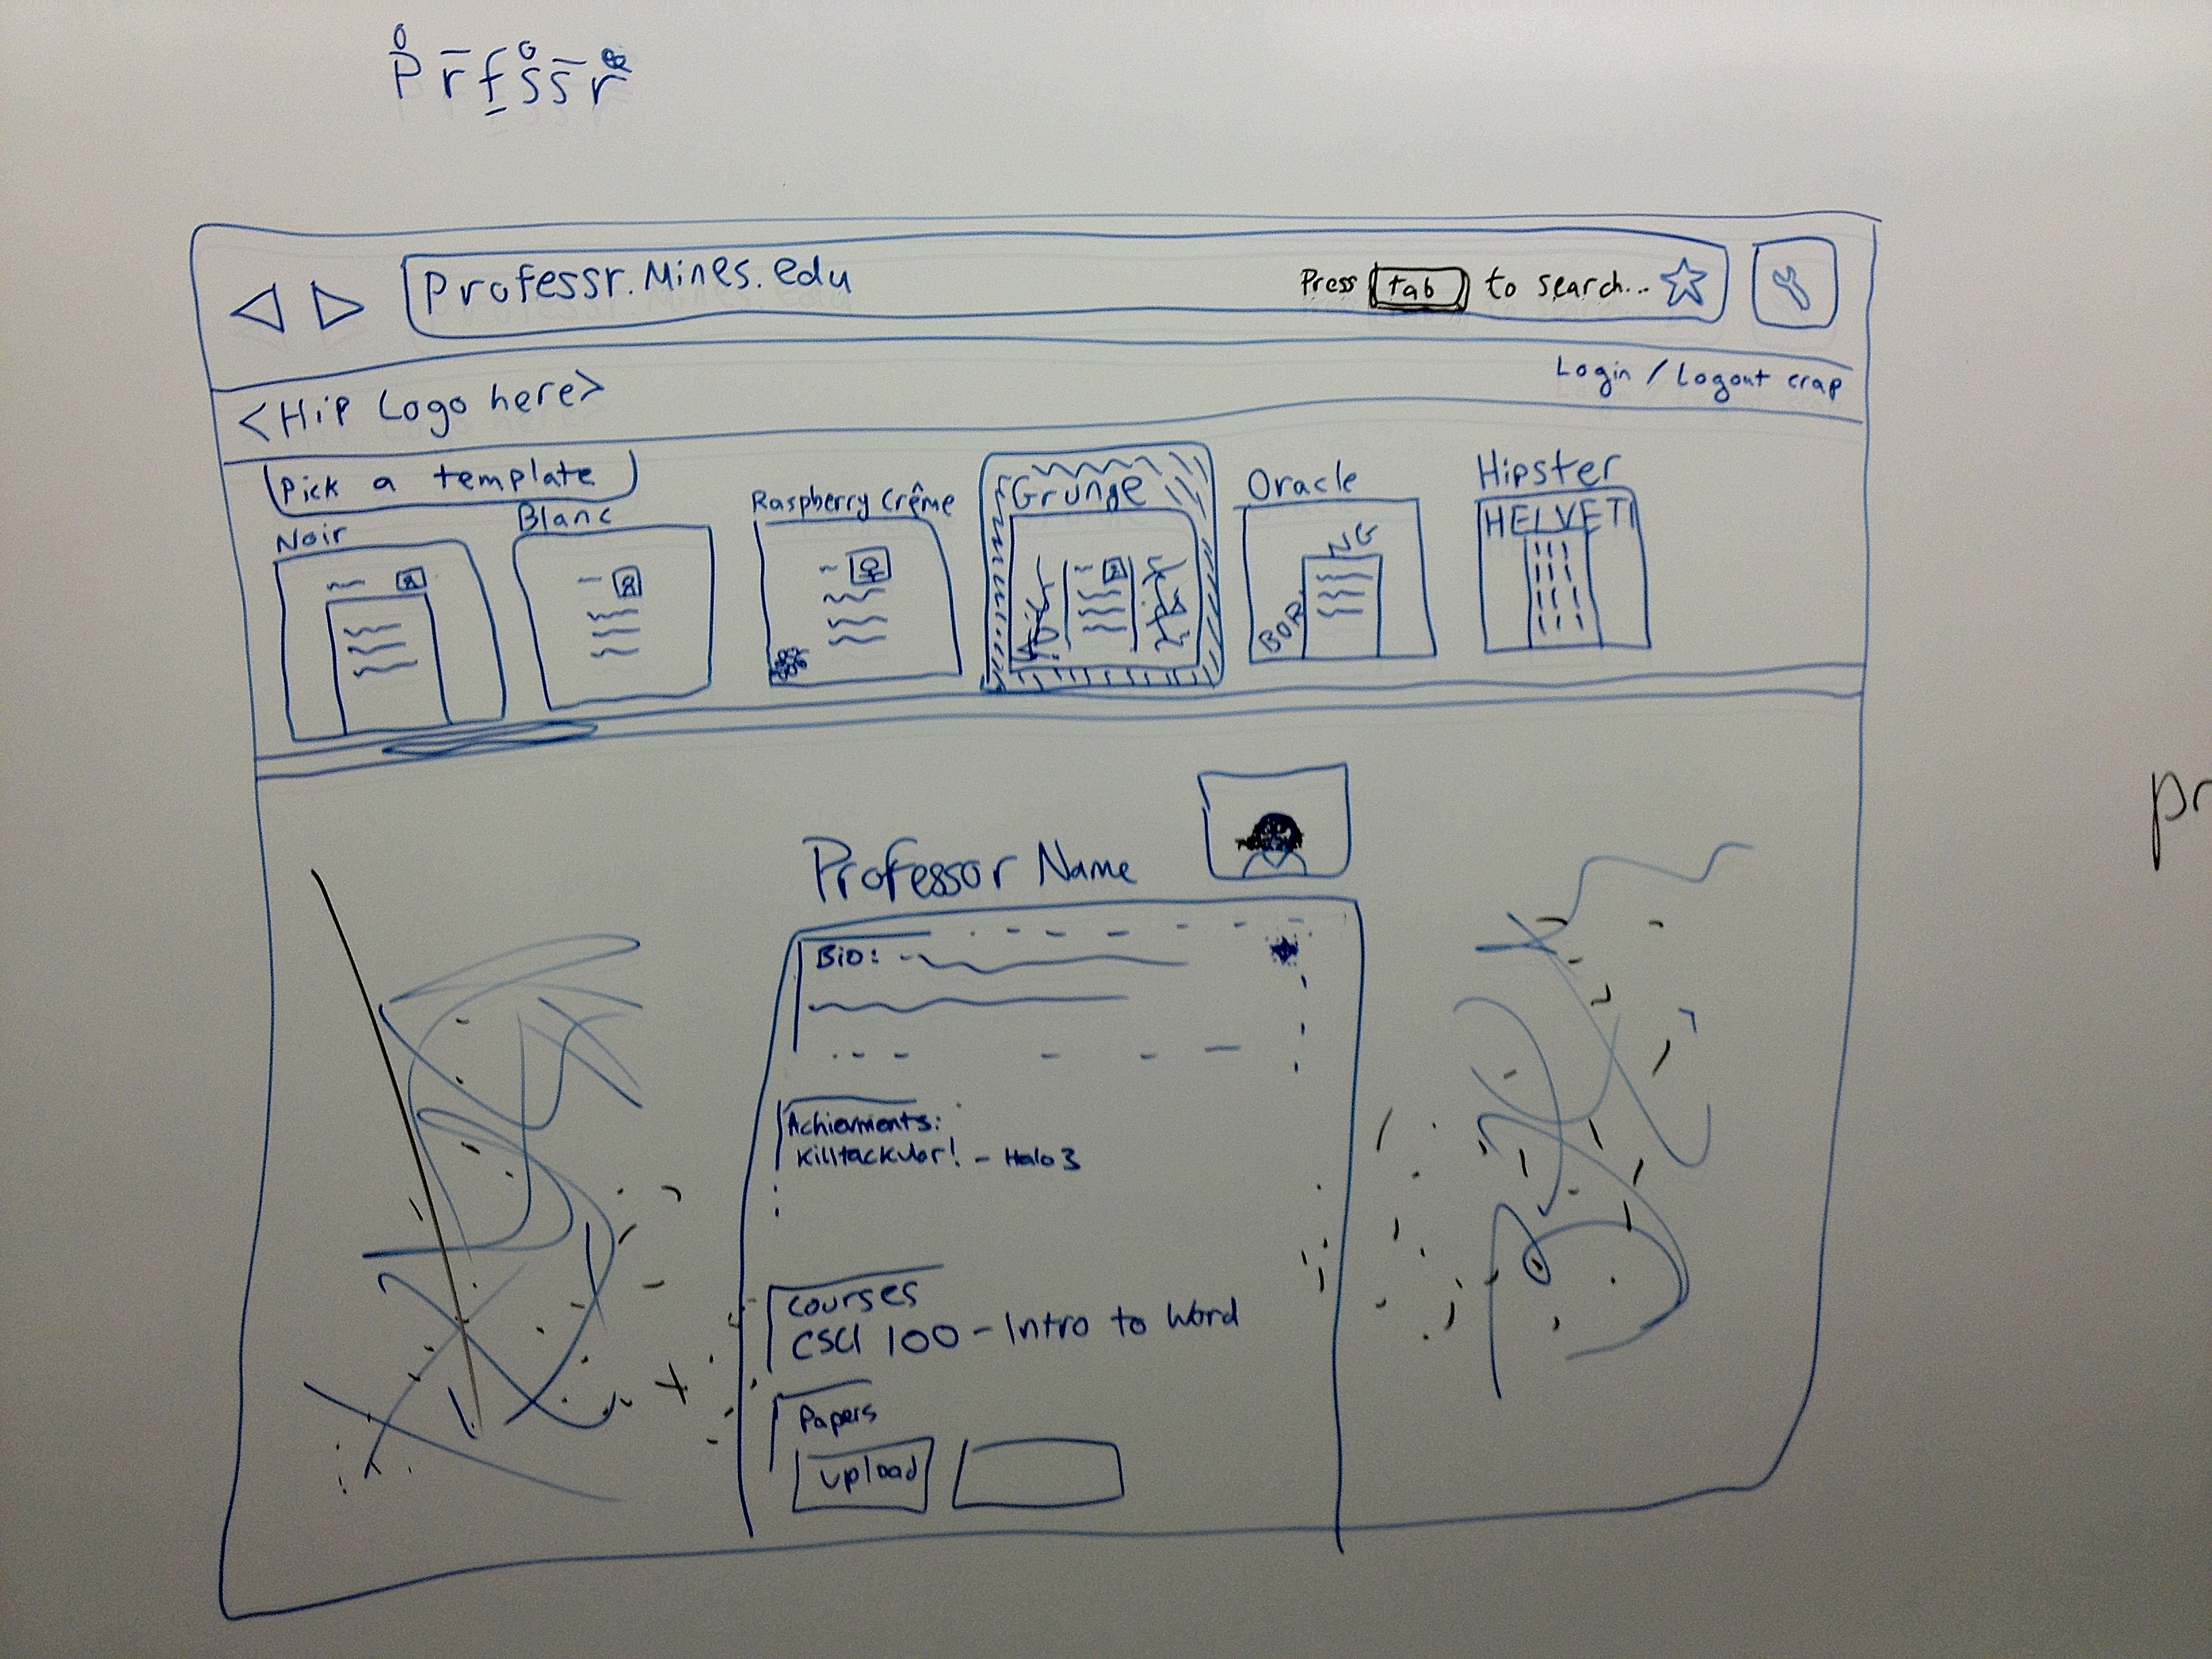 P̊r̄f̲s̊s̄r
Professr.Mines.edu
Press tab to search...
<Hip Logo here>
Login / Logout crap
Pick a template
Noir
Blanc
Raspberry Crême
Grunge
Oracle
Hipster
NG
BOR
HELVETI
Professor Name
Bio:
Achievments:
Killtackular! - Halo 3
Courses
CSCI 100 - Intro to Word
Papers
upload
pr